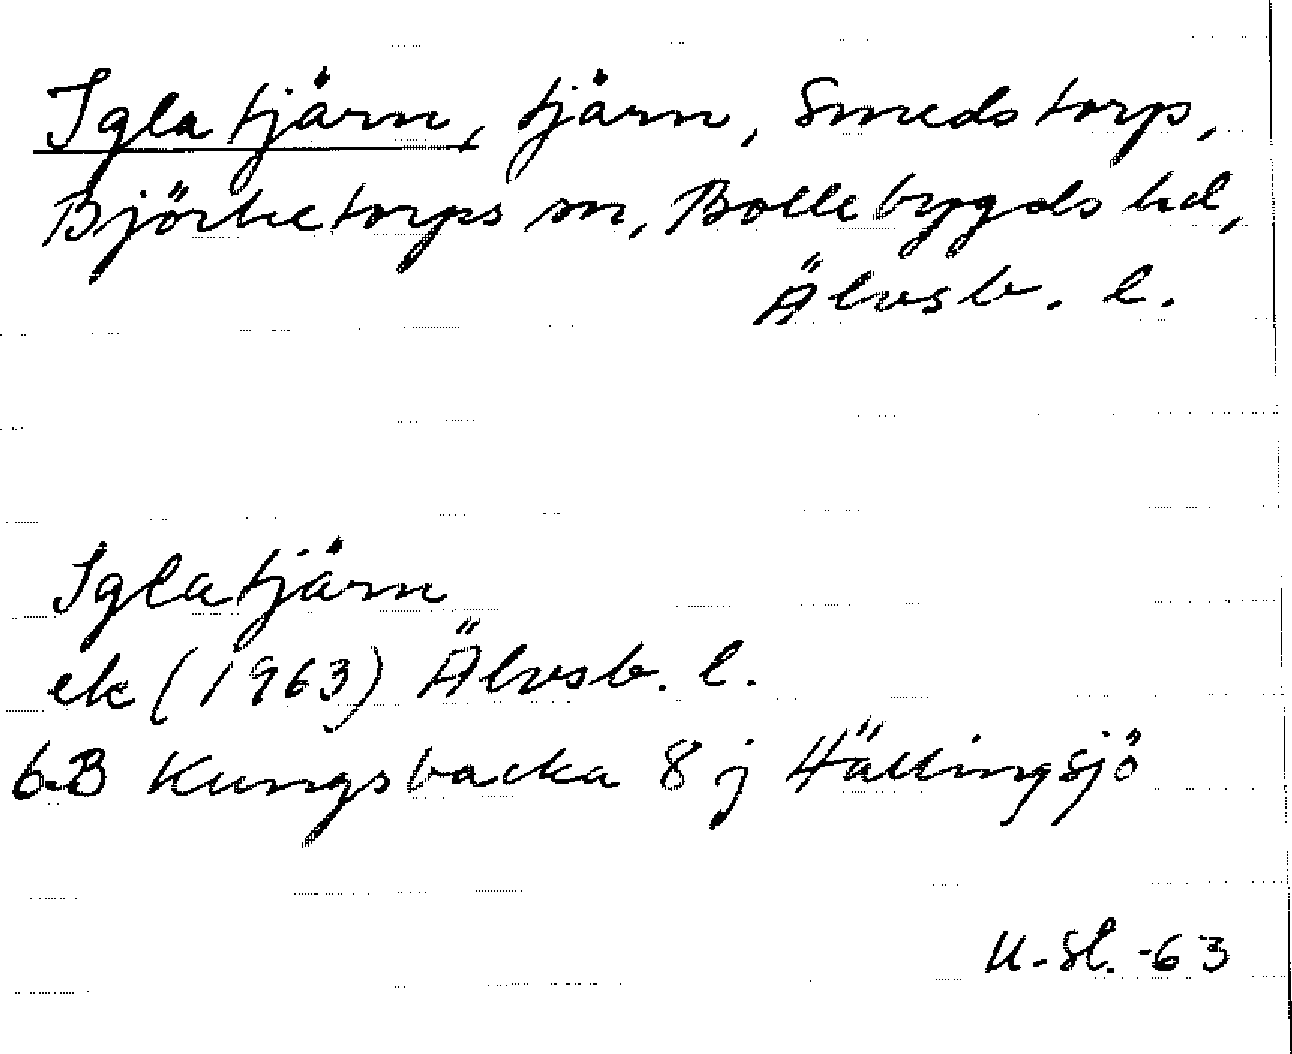 Iglatjärn, tjärn, Smedstorp,
Björketorps sn, Bollebygds hd,
Älvsb. l.
Iglatjärn
ek (1963) Älvsb. l.
6B Kungsbacka 8j Hällingsjö
U-Sl. -63